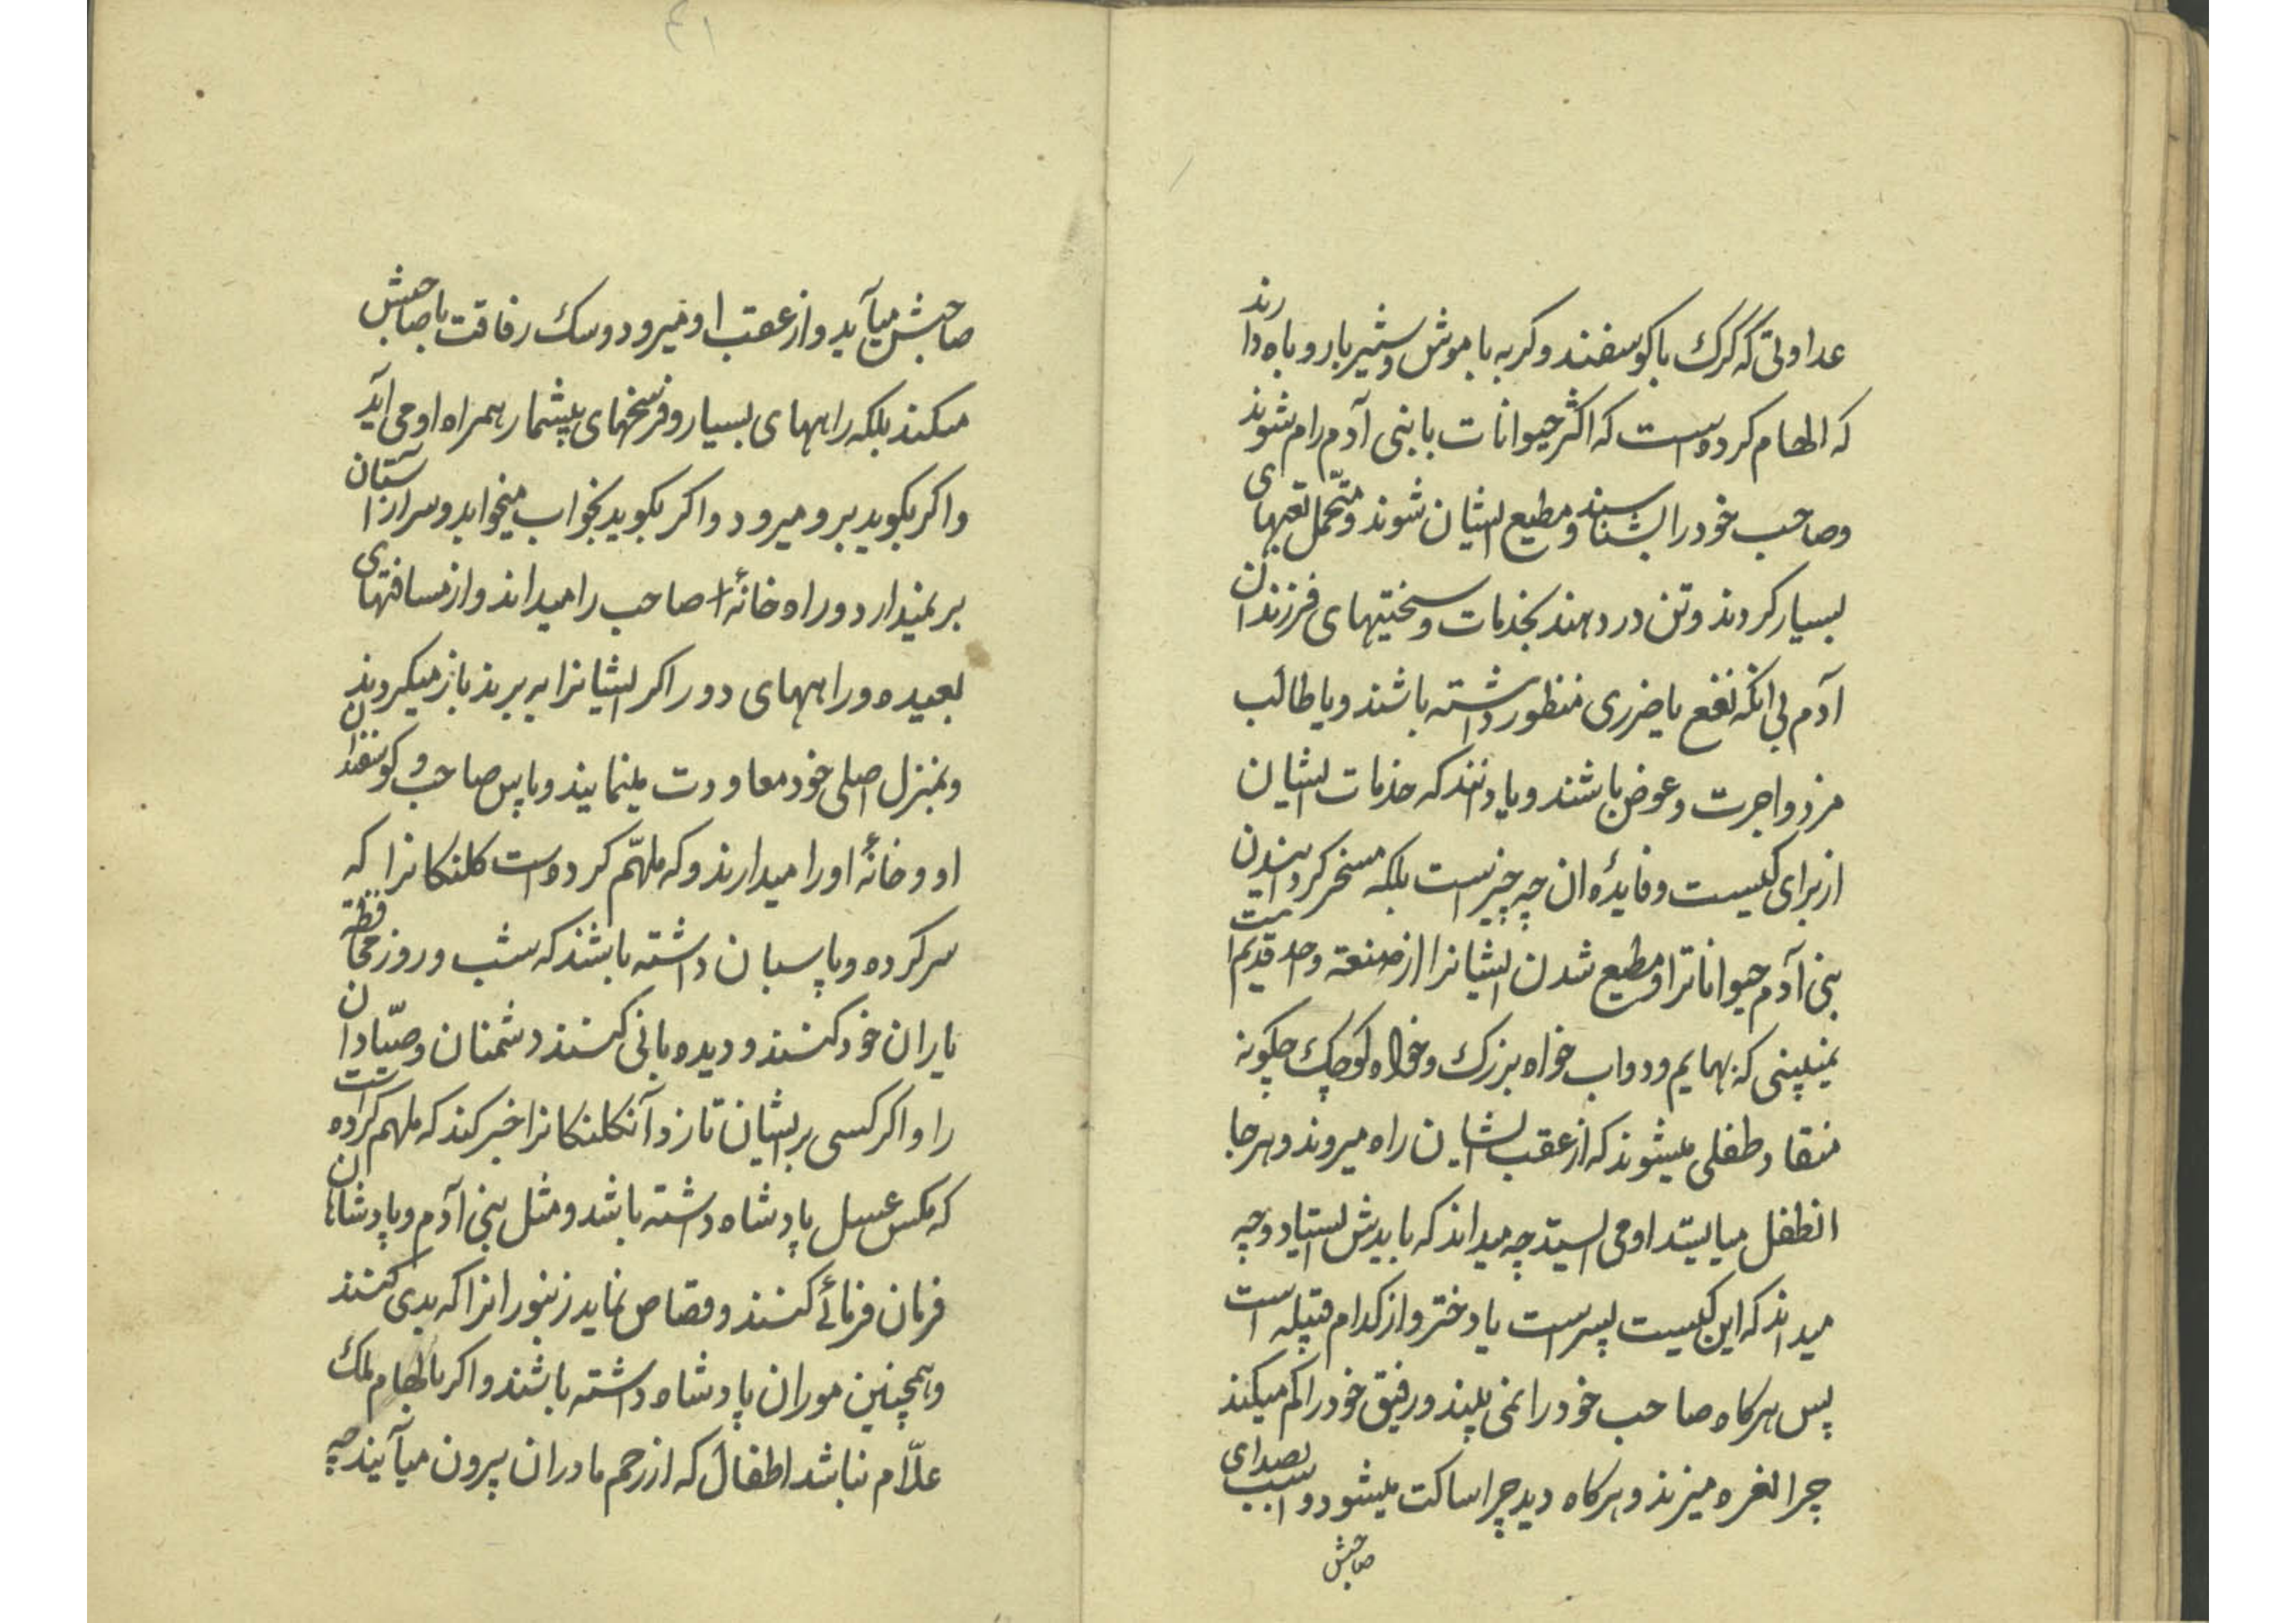 عداوتی که گرگ با کوسفند و کربه با موش و شیر با روباه دارند
که الهام کرده است که اکثر حیوانات با بنی آدم رام شوند
و صاحب خود را بشناسند و مطیع ایشان شوند و متحمل تعبهای
بسیار کردند و تن در دهند بخدمات و سختیهای فرزندان
آدم بی انکه نفع یا ضرری منظور داشته باشند و یا طالب
مزد و اجرت و عوض باشند و یا دانند که خدمات ایشان
از برای کیست و فایدهٔ ان چه چیز است بلکه مسخر کردانیدن
بنی آدم حیواناترا و مطیع شدن ایشانرا از صنعة واحد قدیم است
نمیبینی که بهایم و دواب خواه بزرک و خواه کوچک چکونه
منقاد طفلی میشوند که از عقب ایشان راه میروند و هر جا
انطفل میایستد او می ایستد چه میداند که بایدش ایستاد و چه
میداند که این کیست پسر است یا دختر و از کدام قبیله است
پس هرکاه صاحب خود را نمی بیند و رفیق خود را کم میکند
چرا نعره میزند و هرکاه دید چرا ساکت میشود و اسب بصدای
صاحبش
۴۱
صاحبش میآید و از عقب او میرود و سک رفاقت با صاحبش
میکند بلکه راههای بسیار و فرسخهای بیشمار همراه او می آید
و اکر بکوید برو میرود و اکر بکوید بخواب میخوابد و سر از آستان
بر نمیدارد و راه خانهٔ صاحب را میداند و از مسافتهای
بعیده و راههای دور اکر ایشانرا به برند باز میکردند
و بمنزل اصلی خود معاودت مینمایند و پاس صاحب و کوسفندان
او و خانهٔ او را میدارند و که ملهم کرده است کلنکانرا که
سرکرده و پاسبان داشته باشند که شب و روز محافظة
یاران خود کنند و دیده بانی کنند دشمنان و صیّادان
را و اکر کسی بر ایشان تازد آنکلنکانرا خبر کند که ملهم کرده است
که مکس عسل پادشاه داشته باشد و مثل بنی آدم و پادشاهان
فرمان فرمائی کنند و قصاص نماید زنبورانرا که بدی کنند
و همچنین موران پادشاه داشته باشند و اکر بالهام ملک
علّام نباشد اطفال که از رحم مادران بیرون میآیند چه